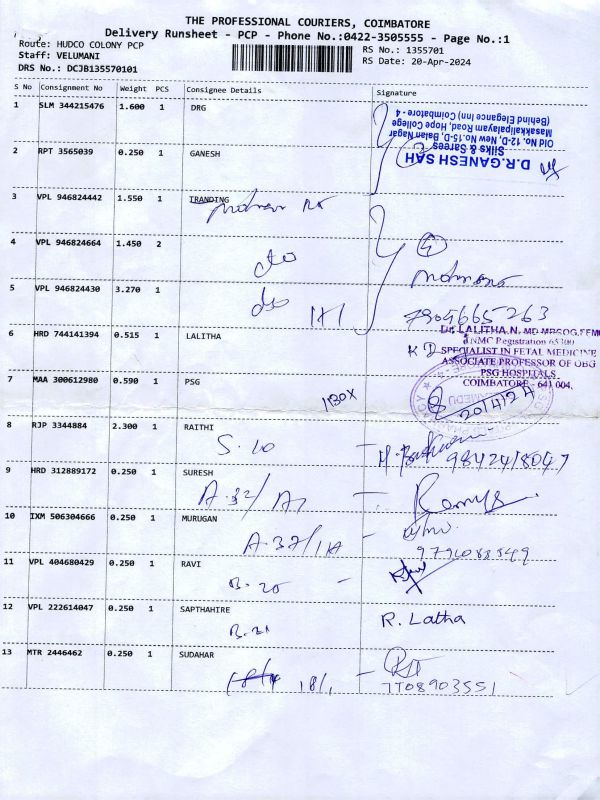 THE PROFESSIONAL COURIERS, COIMBATORE
Delivery Runsheet - PCP - Phone No.:0422-3505555 - Page No.:1
Route: HUDCO COLONY PCP
RS No.: 1355701
Staff: VELUMANI
RS Date: 20-Apr-2024
DRS No.: DCJB135570101
S No Consignment No Weight PCS Consignee Details Signature
1 SLM 344215476 1.600 1 DRG
D.R.GANESH SAH
Silks & Sarees
Old No. D-12, New No.15-D, Balan Nagar
Masakkalipalayam Road, Hope College
(Behind Elegance Inn) Coimbatore - 4
2 RPT 3565039 0.250 1 GANESH
3 VPL 946824442 1.550 1 TRANDING
4 VPL 946824664 1.450 2
4
5 VPL 946824430 3.270 1
7904665263
6 HRD 744141394 0.515 1 LALITHA
DR LALITHA.N, MD MRCOG, FFMC
TNMC Registration 65300
SPECIALIST IN FETAL MEDICINE
ASSOCIATE PROFESSOR OF OBG
PSG HOSPITALS
COIMBATORE - 641 004.
7 MAA 300612980 0.590 1 PSG
1130X
20/4/24
8 RJP 3344884 2.300 1 RAITHI
S. 10
9842418047
9 HRD 312889172 0.250 1 SURESH
A.32/A7
10 IXM 506304666 0.250 1 MURUGAN
A.37/1A
11 VPL 404680429 0.250 1 RAVI
B. 20
12 VPL 222614047 0.250 1 SAPTHAHIRE
B.21
R. Latha
13 MTR 2446462 0.250 1 SUDAHAR
7708903551